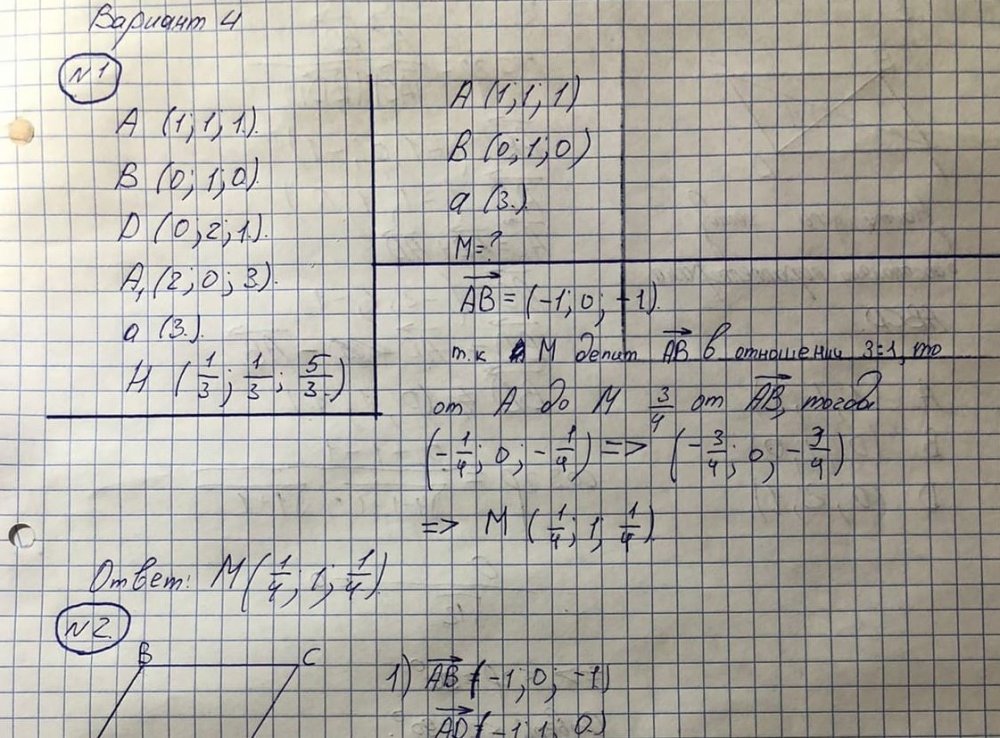 Вариант 4
№1
A (1; 1; 1).
B (0; 1; 0).
D (0; 2; 1).
A₁ (2; 0; 3).
a (3.)
H (1/3; 1/3; 5/3.)
A (1; 1; 1)
B (0; 1; 0)
a (3.)
M=?
AB = (-1; 0; -1).
т.к M делит AB в отношении 3:1, то
от A до M 3/4 от AB, тогда
(-1/4; 0; -1/4) => (-3/4; 0; -3/4)
=> M (1/4; 1; 1/4)
Ответ: M (1/4; 1; 1/4).
№2.
B C
1) AB (-1; 0; -1)
AD (-1; 1; 0.)